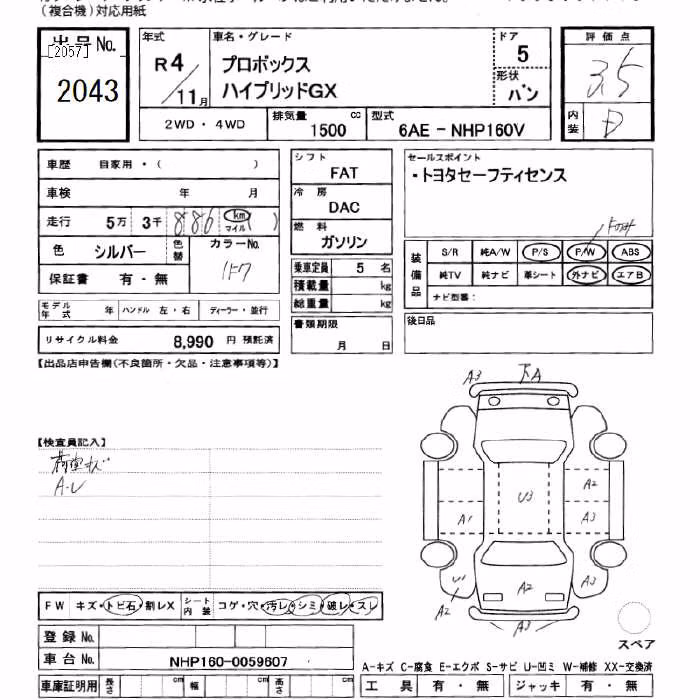 (複合機)対応用紙
出品No.
[2057]
2043
年式
R4/11月
車名・グレード
プロボックス
ハイブリッドGX
ドア
5
形状
バン
評価点
3.5
内装
D
2WD・4WD
排気量 1500 cc
型式 6AE-NHP160V
車歴 自家用・( )
車検 年 月
走行 5万 3千 886 km マイル ( )
色 シルバー 色替
カラーNo.
1F7
保証書 有・無
モデル年式 年 ハンドル 左・右 ディーラー・並行
リサイクル料金 8,990 円 預託済
シフト
FAT
冷房
DAC
燃料
ガソリン
乗車定員 5 名
積載量 kg
総重量 kg
書類期限
月 日
セールスポイント
・トヨタセーフティセンス
装備品
S/R 純A/W P/S P/W ABS
純TV 純ナビ 革シート 外ナビ エアB
ナビ型番:
後日品
【出品店申告欄(不良箇所・欠品・注意事項等)】
【検査員記入】
A・U
A3 下A
U3
A2
A1 A3
U1 A2 A3
A2
A3
スペア
FW キズ・トビ石・割レX シート内装 コゲ・穴・汚レ・シミ・破レ・スレ
登録No.
車台No. NHP160-0059607
車庫証明用 長さ cm 幅 cm 高さ cm
A-キズ C-腐食 E-エクボ S-サビ U-凹ミ W-補修 XX-交換済
工具 有・無 ジャッキ 有・無